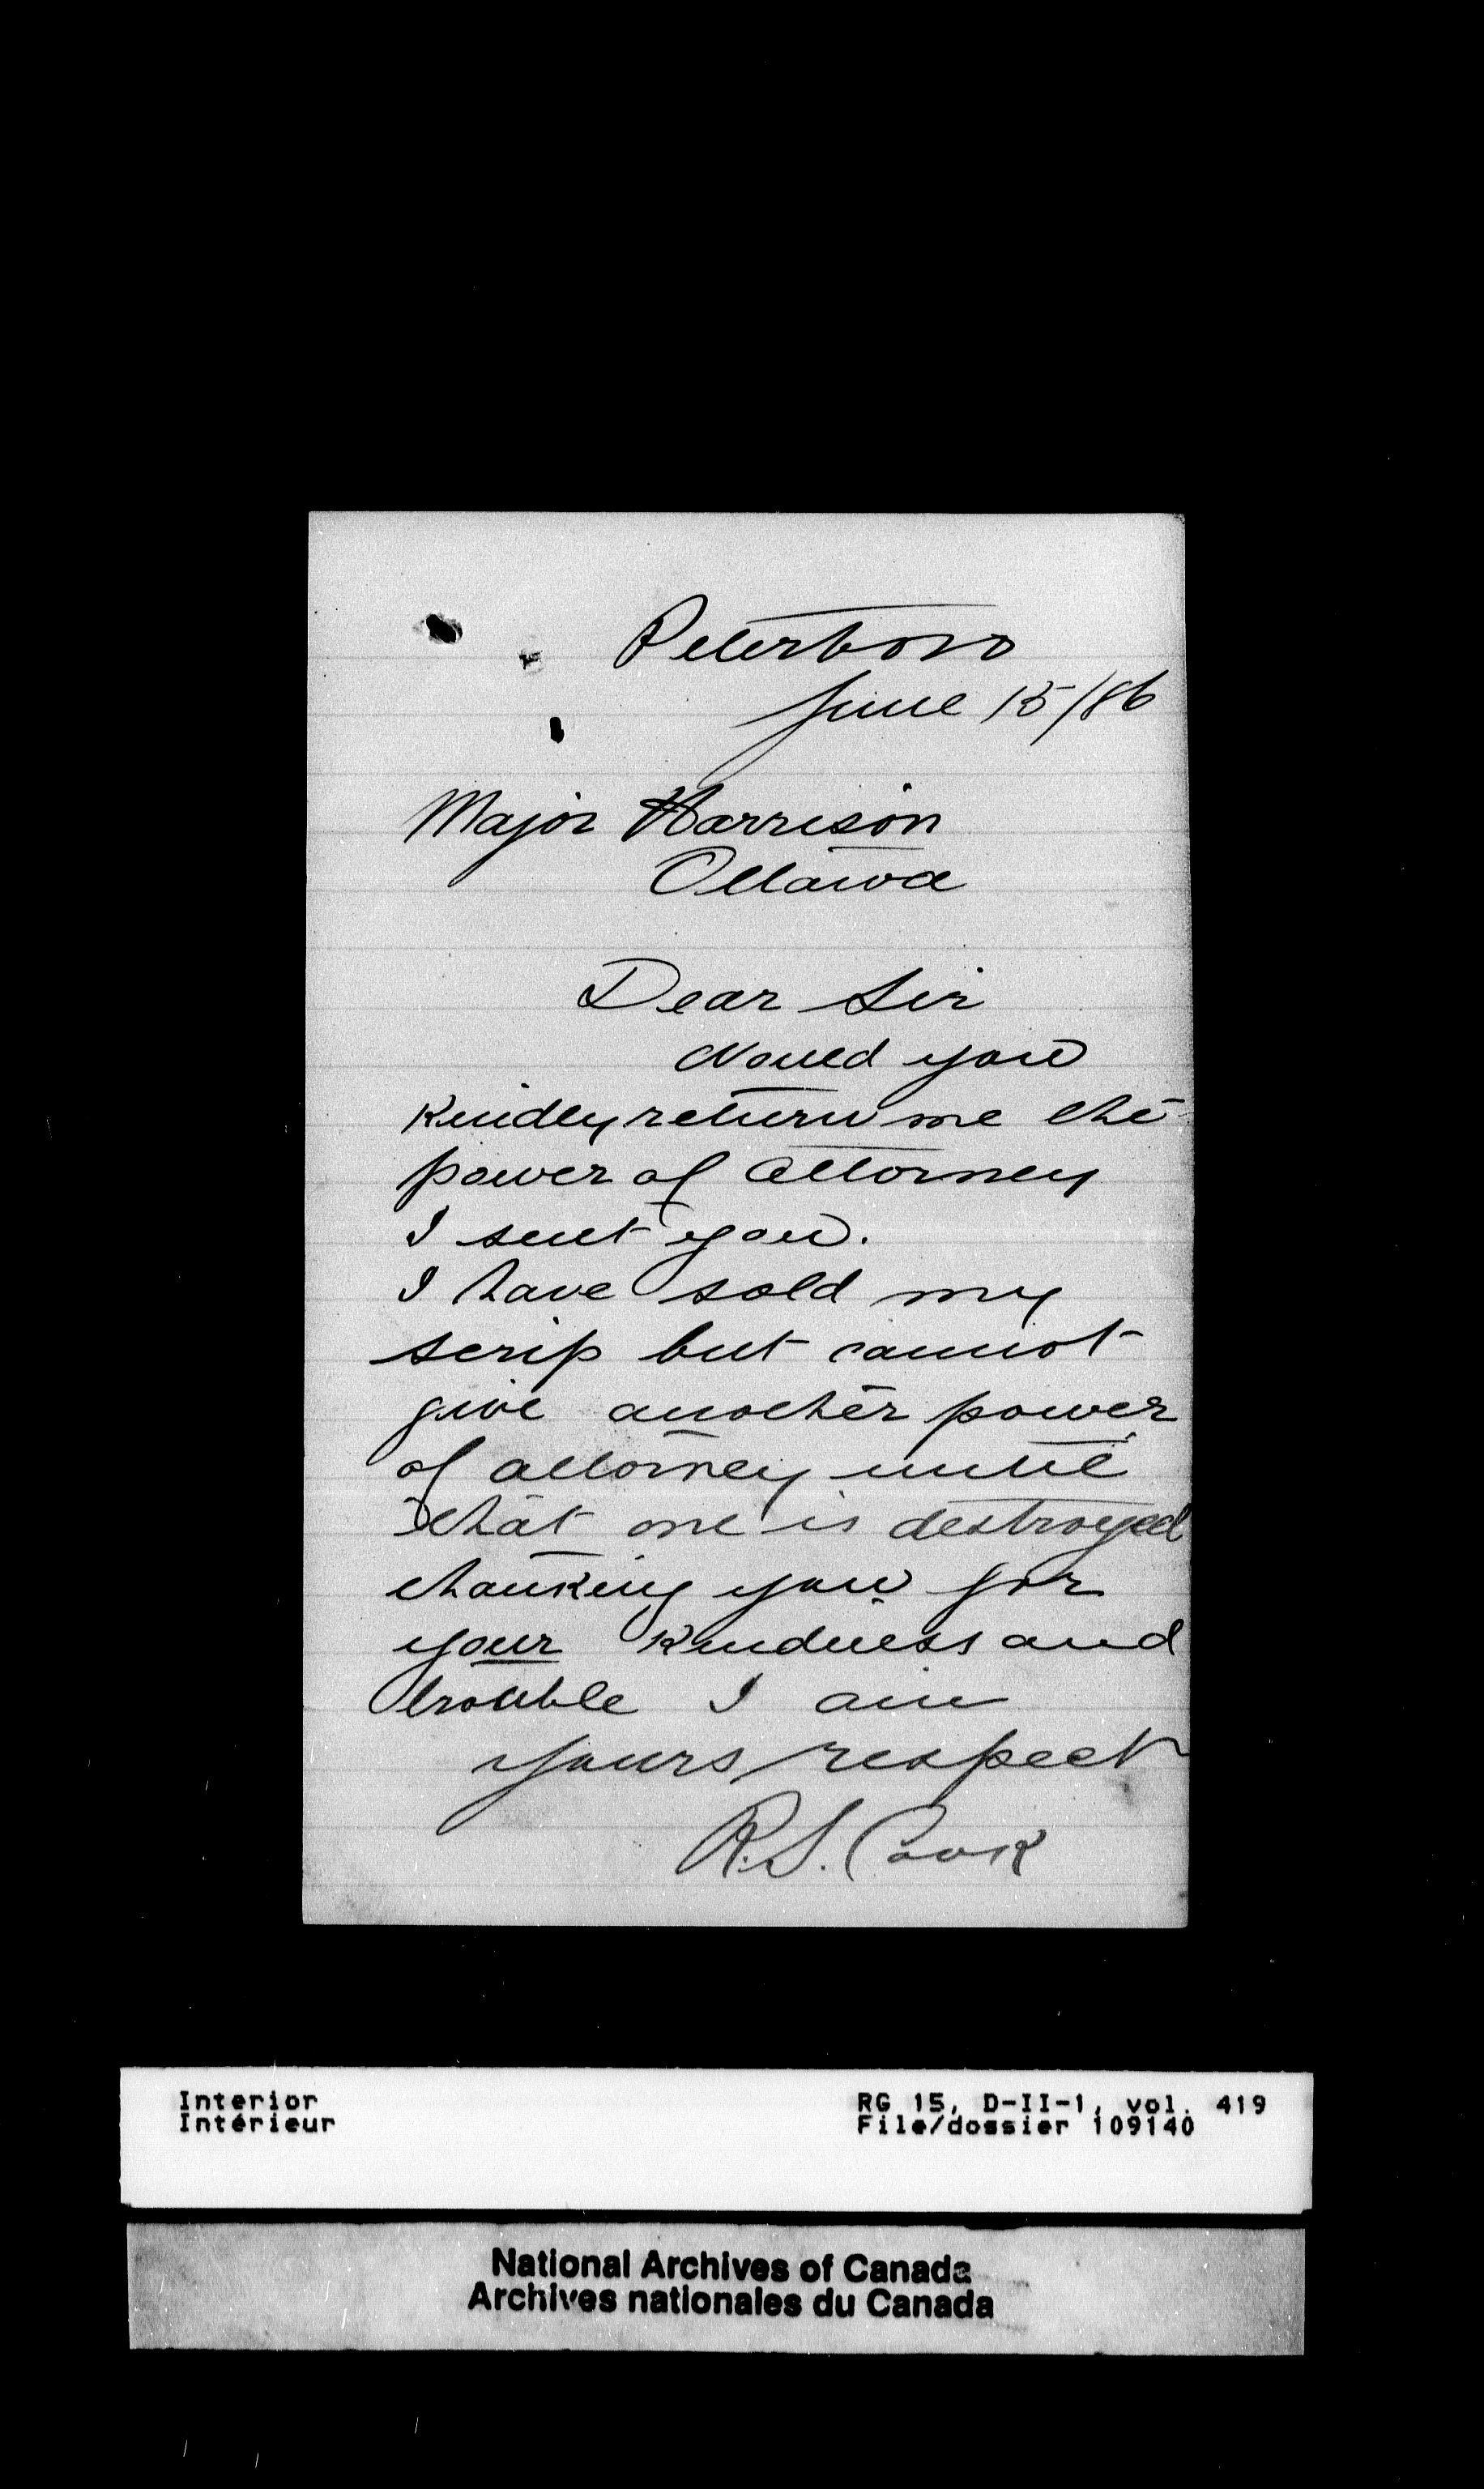 Peterboro
June 15/86
Major Harrison
Ottawa
Dear Sir
Would you
kindly return me the
power of attorney
I sent you.
I have sold my
scrip but cannot
give another power
of attorney until
that one is destroyed
thanking you for
your kindness and
trouble I am
yours respect
R.S. Cook
Interior
Intérieur
RG 15, D-II-1, vol. 419
File/dossier 109140
National Archives of Canada
Archives nationales du Canada